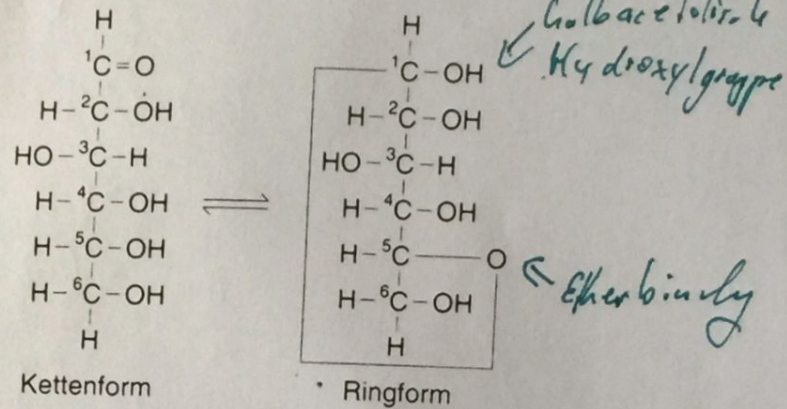 H
¹C=O
H-²C-OH
HO-³C-H
H-⁴C-OH
H-⁵C-OH
H-⁶C-OH
H
Kettenform
H
¹C-OH
H-²C-OH
HO-³C-H
H-⁴C-OH
H-⁵C-O
H-⁶C-OH
H
Ringform
halbacetalische
Hydroxylgruppe
Etherbindung